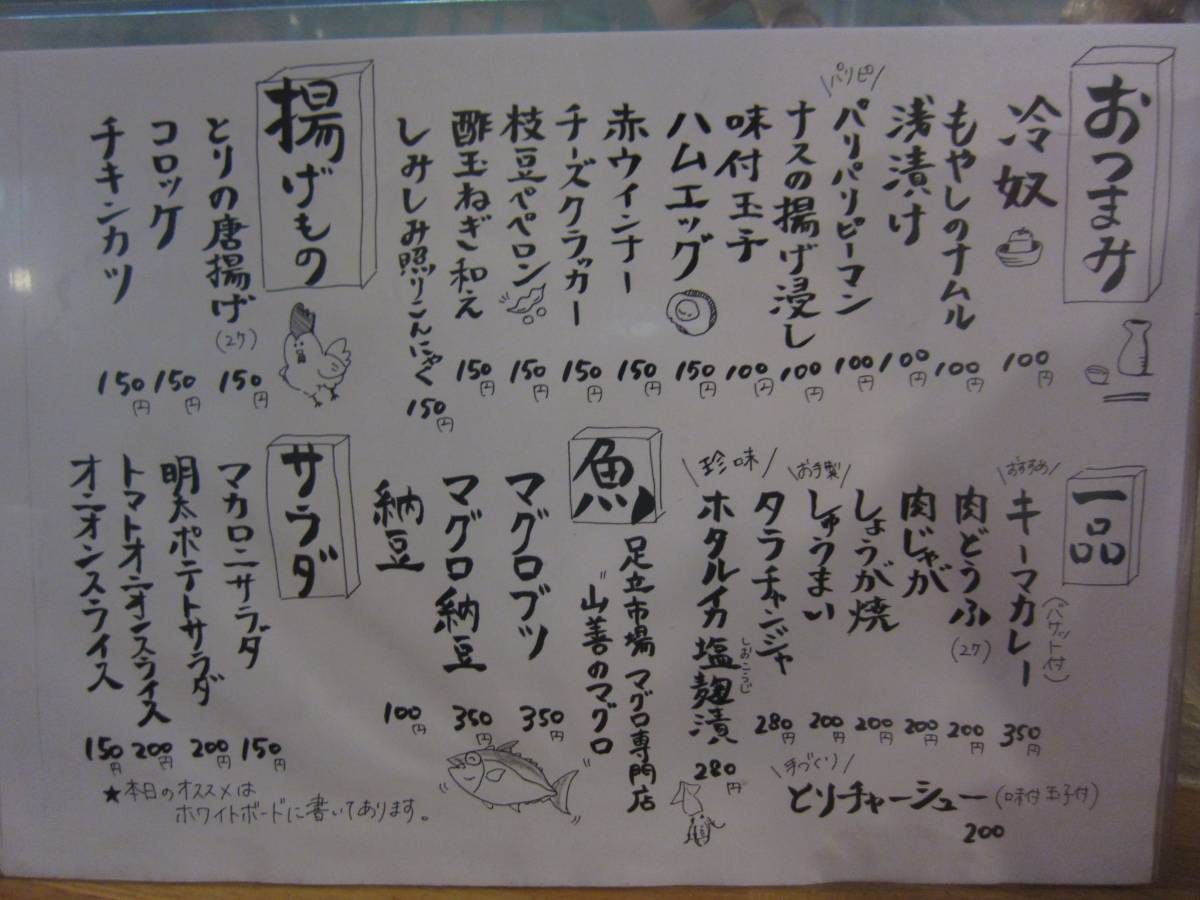 おつまみ
冷奴 100円
もやしのナムル 100円
浅漬け 100円
パリピ
パリパリピーマン 100円
ナスの揚げ浸し 100円
味付玉子 100円
ハムエッグ 150円
赤ウインナー 150円
チーズクラッカー 150円
枝豆ペペロン 150円
酢玉ねぎ和え 150円
しみしみ照りこんにゃく 150円
揚げもの
とりの唐揚げ(2ケ) 150円
コロッケ 150円
チキンカツ 150円
一品
おすすめ
キーマカレー(バケット付) 350円
肉どうふ(2ケ) 200円
肉じゃが 200円
しょうが焼 200円
お手製
しゅうまい 200円
タラチャンジャ 280円
珍味
ホタルイカ塩麹漬 280円
しおこうじ
手づくり
とりチャーシュー(味付玉子付)
200
魚
足立市場 マグロ専門店
"山善のマグロ"
マグロブツ 350円
マグロ納豆 350円
納豆 100円
サラダ
マカロニサラダ 150円
明太ポテトサラダ 200円
トマトオニオンスライス 200円
オニオンスライス 150円
★本日のオススメは
ホワイトボードに書いてあります。